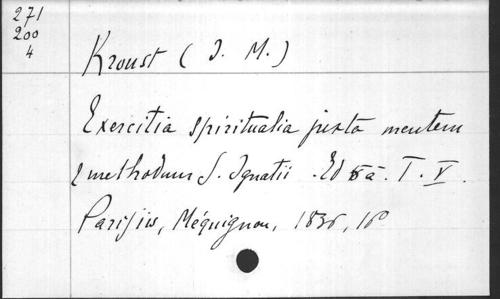 271
200
4
Kroust (J. M.)
Exercitia spiritualia juxta mentem
& methodum S. Ignatii. Ed 5a. T. V.
Parisiis, Méquignon, 1836, 16°